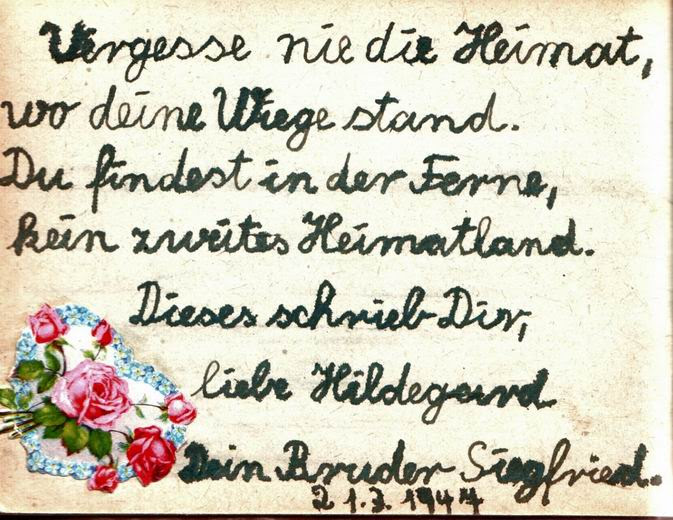 Vergesse nie die Heimat,
wo deine Wiege stand.
Du findest in der Ferne,
kein zweites Heimatland.
Dieses schrieb Dir,
liebe Hildegard
Dein Bruder Siegfried.
21.3.1944